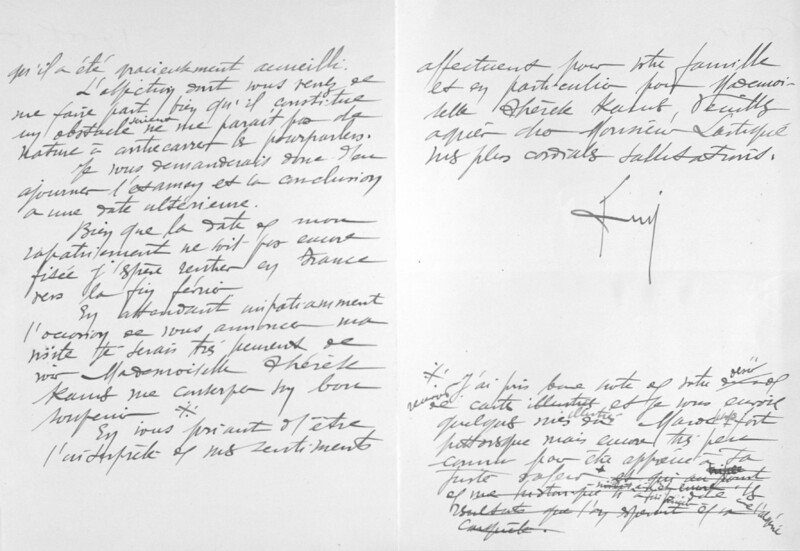 qu'il a été gracieusement accueilli.
L'objection dont vous venez de
me faire part, bien qu'il constitue
un obstacle sérieux ne me parait pas de
nature à contrecarrer les pourparlers.
Je vous demanderais donc d'en
ajourner l'examen et la conclusion
a une date ultérieure.
Bien que la date de mon
rapatriement ne soit pas encore
fixée j'espère rentrer en France
vers la fin février
En attendant impatiemment
l'occasion de vous annoncer ma
visite je serais très heureux de
voir Mademoiselle Thérèse
me conserver son bon
souvenir *
En vous priant d'être
l'interprète de mes sentiments
affectueux pour votre famille
et en particulier pour Mademoi-
selle Thérèse veuillez
agréer cher Monsieur
mes plus cordiales salutations.
* J'ai pris bonne note de votre désir
de cartes et je vous envoie
quelques du Maroc fort
pittoresque mais encore très peu
connu pour être apprécié à sa
juste valeur
et me
résultats que l'on
conquête.